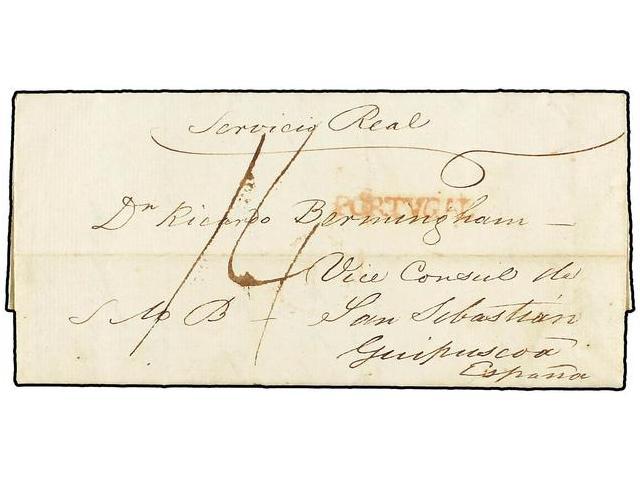 Servicio Real
PORTVGAL
Dn Ricardo Bermingham —
Vice Consul de
S M B — San Sebastián
Guipuscoa
España